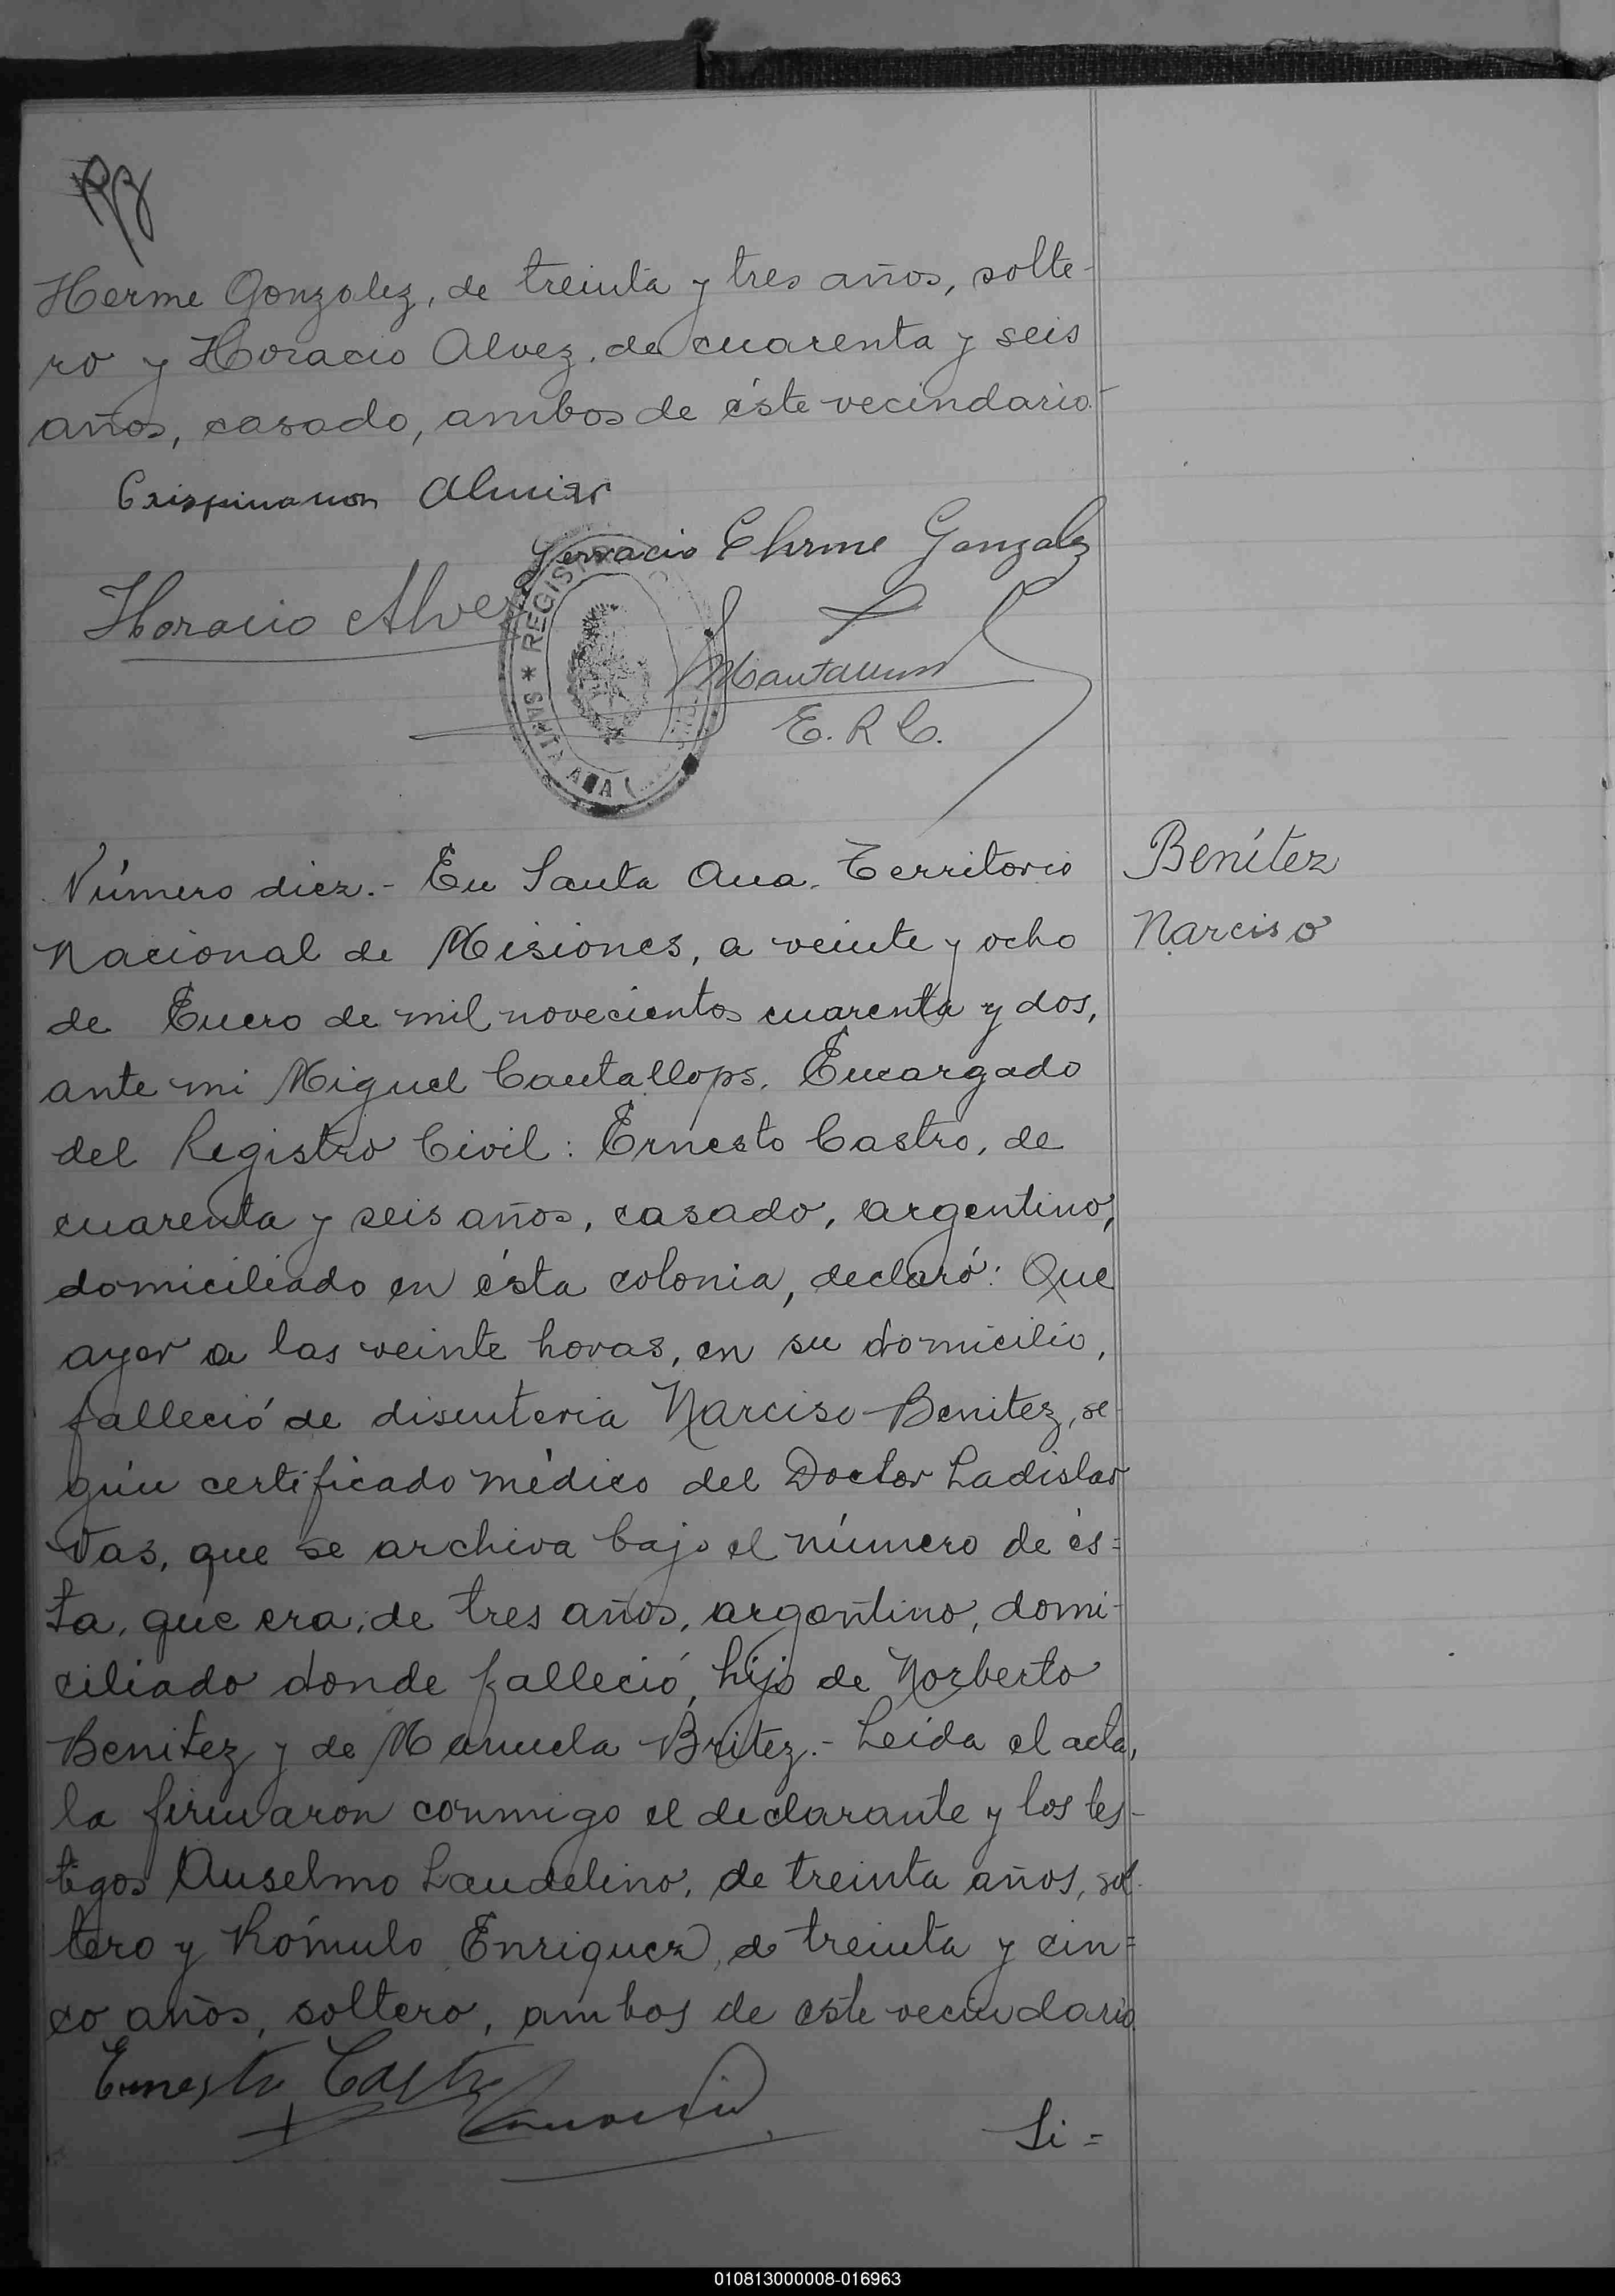 Herme Gonzalez, de treinta y tres años, solte-
ro y Horacio Alvez, de cuarenta y seis
años, casado, ambos de éste vecindario.-
Gervacio Eherme Gonzalez
Horacio Alvez
* REGISTR
SANTA ANA (
E. R C.
Número diez.- En Santa Ana, Territorio
Nacional de Misiones, a veinte y ocho
de Enero de mil novecientos cuarenta y dos,
ante mi Miguel Cantallops, Encargado
del Registro Civil: Ernesto Castro, de
cuarenta y seis años, casado, argentino,
domiciliado en ésta colonia, declaró: Que
ayer a las veinte horas, en su domicilio,
falleció de disenteria Narciso Benitez, se-
gún certificado médico del Doctor Ladislao
Vas, que se archiva bajo el número de és=
ta, que era, de tres años, argentino, domi-
ciliado donde falleció, hijo de Norberto
Benitez y de Manuela Britez.- Leída el acta,
la firmaron conmigo el declarante y los tes-
tigos Anselmo Laudelino, de treinta años, sol-
tero y Rómulo Enriquez, de treinta y cin=
co años, soltero, ambos de este vecindario.
Benítez
Narciso
Ernesto Castro
Si=
010813000008-016963